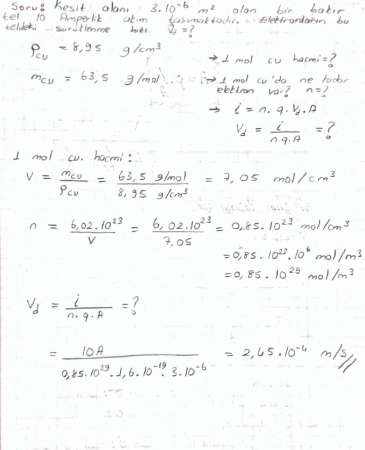 Soru: Kesit alanı 3.10⁻⁶ m² olan bir bakır
tel 10 Amperlik akım taşımaktadır. Elektronların bu
teldeki sürüklenme hızı V_d = ?
ρ_cu = 8,95 g/cm³
→ 1 mol cu hacmi = ?
m_cu = 63,5 g/mol
→ 1 mol cu'da ne kadar
elektron var? n = ?
→ i = n.q.V_d.A
V_d = i / n.q.A = ?
1 mol cu. hacmi:
V = m_cu / ρ_cu = 63,5 g/mol / 8,95 g/cm³ = 7,05 mol/cm³
n = 6,02.10²³ / V = 6,02.10²³ / 7,05 = 0,85.10²³ mol/cm³
= 0,85.10²³.10⁶ mol/m³
= 0,85.10²⁹ mol/m³
V_d = i / n.q.A = ?
= 10A / 0,85.10²⁹.1,6.10⁻¹⁹.3.10⁻⁶ = 2,45.10⁻⁴ m/s //